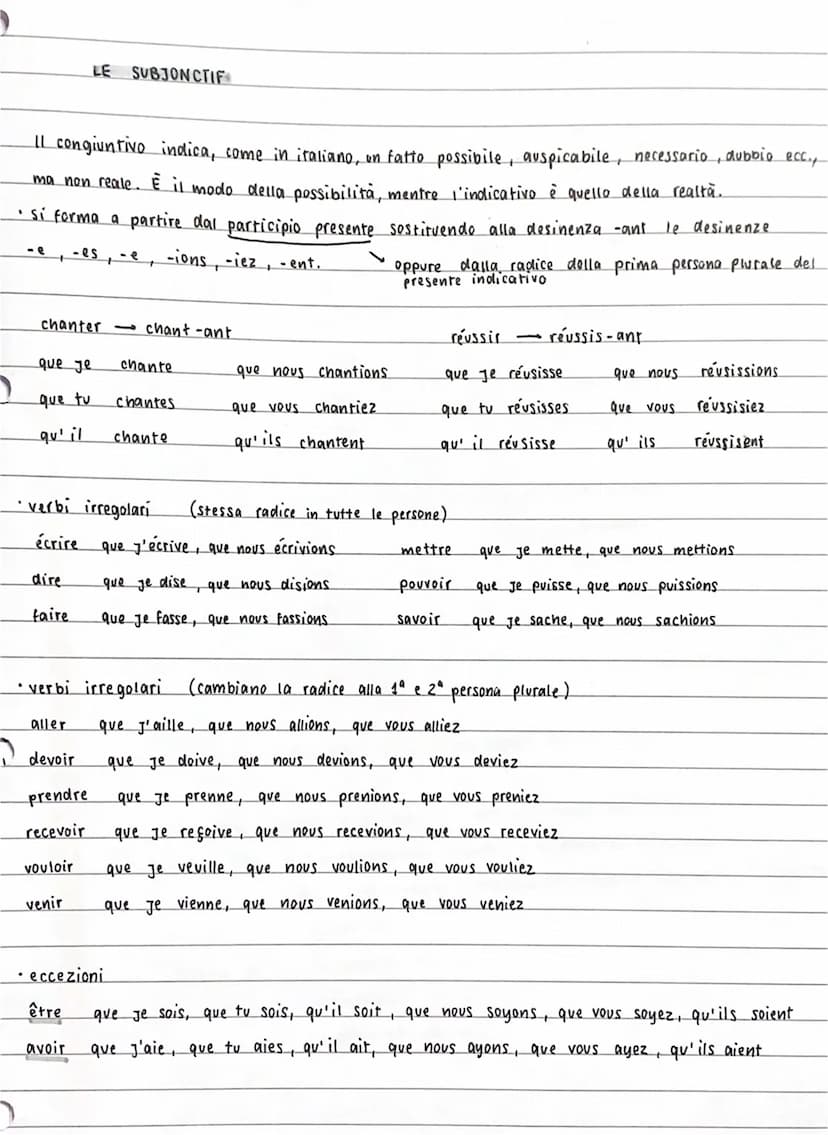 LE SUBJONCTIF
Il congiuntivo indica, come in italiano, un fatto possibile, auspicabile, necessario, dubbio ecc.,
ma non reale. È il modo della possibilità, mentre l'indicativo è quello della realtà.
• si forma a partire dal participio presente sostituendo alla desinenza -ant le desinenze
-e, -es, -e, -ions, -iez, -ent. ↘ oppure dalla radice della prima persona plurale del
presente indicativo
chanter → chant-ant réussir → réussis-ant
que je chante que nous chantions que je réusisse que nous réusissions
que tu chantes que vous chantiez que tu réusisses que vous réussisiez
qu'il chante qu'ils chantent qu'il réusisse qu'ils réussisent
• verbi irregolari (stessa radice in tutte le persone)
écrire que j'écrive, que nous écrivions mettre que je mette, que nous mettions
dire que je dise, que nous disions pouvoir que je puisse, que nous puissions
faire que je fasse, que nous fassions savoir que je sache, que nous sachions
• verbi irregolari (cambiano la radice alla 1ª e 2ª persona plurale)
aller que j'aille, que nous allions, que vous alliez
devoir que je doive, que nous devions, que vous deviez
prendre que je prenne, que nous prenions, que vous preniez
recevoir que je reçoive, que nous recevions, que vous receviez
vouloir que je veuille, que nous voulions, que vous vouliez
venir que je vienne, que nous venions, que vous veniez
• eccezioni
être que je sois, que tu sois, qu'il soit, que nous soyons, que vous soyez, qu'ils soient
avoir que j'aie, que tu aies, qu'il ait, que nous ayons, que vous ayez, qu'ils aient